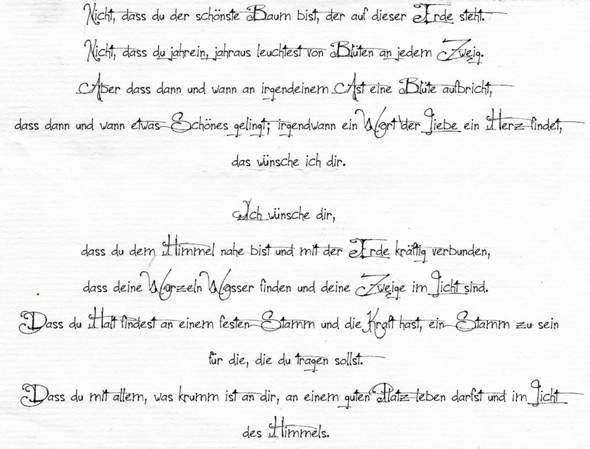 Nicht, dass du der schönste Baum bist, der auf dieser Erde steht.
Nicht, dass du jahrein, jahraus leuchtest von Blüten an jedem Zweig.
Aber dass dann und wann an irgendeinem Ast eine Blüte aufbricht,
dass dann und wann etwas Schönes gelingt; irgendwann ein Wort der Liebe ein Herz findet,
das wünsche ich dir.
Ich wünsche dir,
dass du dem Himmel nahe bist und mit der Erde kräftig verbunden,
dass deine Wurzeln Wasser finden und deine Zweige im Licht sind.
Dass du Halt findest an einem festen Stamm und die Kraft hast, ein Stamm zu sein
für die, die du tragen sollst.
Dass du mit allem, was krumm ist an dir, an einem guten Platz leben darfst und im Licht
des Himmels.